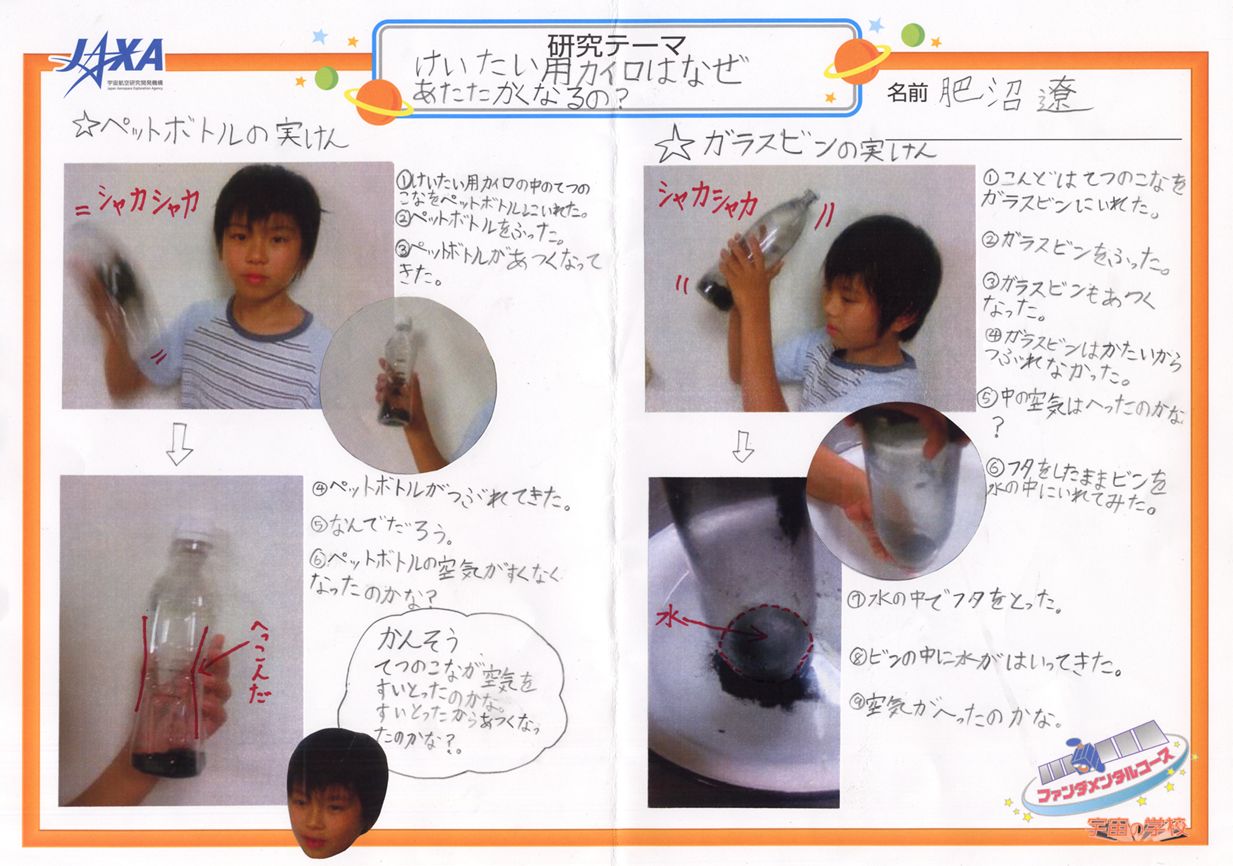 JAXA
宇宙航空研究開発機構
Japan Aerospace Exploration Agency
研究テーマ
けいたい用カイロはなぜ
あたたかくなるの？
名前 肥沼 遼
☆ペットボトルの実けん
シャカシャカ
①けいたい用カイロの中のてつの
こなをペットボトルにいれた。
②ペットボトルをふった。
③ペットボトルがあつくなって
きた。
④ペットボトルがつぶれてきた。
⑤なんでだろう。
⑥ペットボトルの空気がすくなく
なったのかな？
へっこんだ
かんそう
てつのこなが空気を
すいとったのかな。
すいとったからあつくなっ
たのかな？。
☆ガラスビンの実けん
シャカシャカ
①こんどはてつのこなを
ガラスビンにいれた。
②ガラスビンをふった。
③ガラスビンもあつく
なった。
④ガラスビンはかたいから
つぶれなかった。
⑤中の空気はへったのかな
？
⑥フタをしたままビンを
水の中にいれてみた。
水
⑦水の中でフタをとった。
⑧ビンの中に水がはいってきた。
⑨空気がへったのかな。
ファンダメンタルコース
宇宙の学校